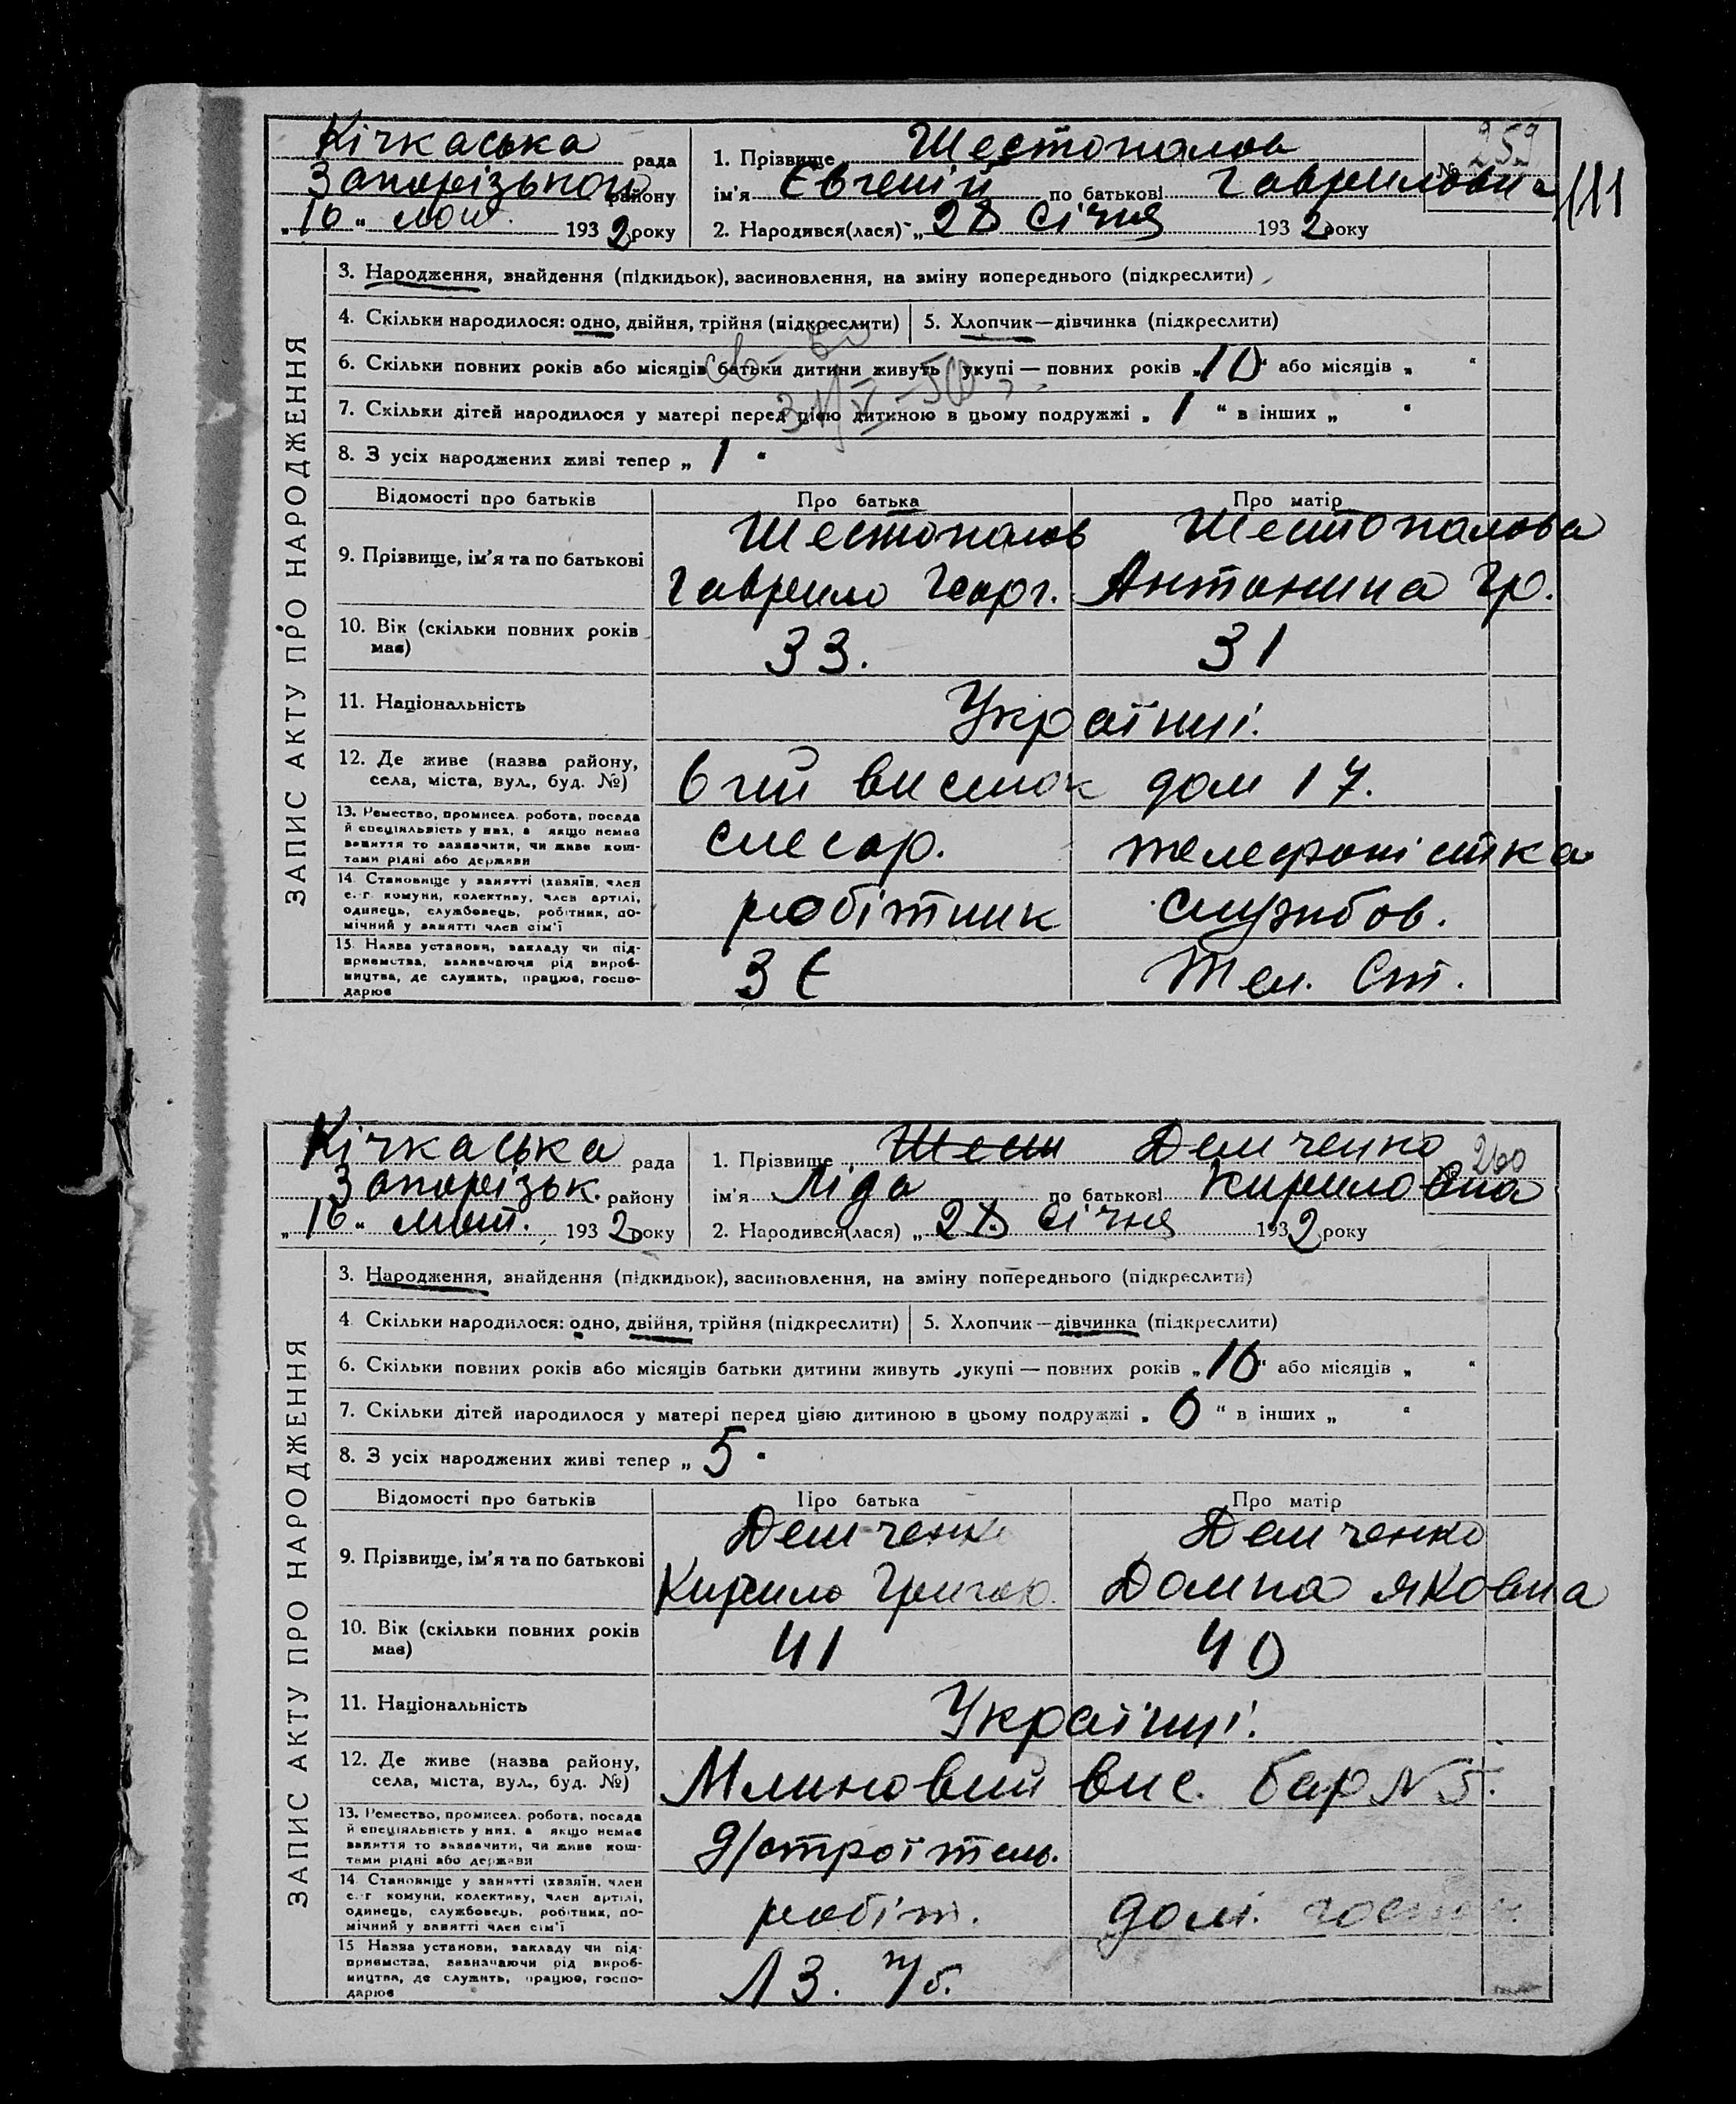 Кічкаська рада
Запорізького району
„16“ лют. 1932 року
1. Прізвище Шестопалов
№ 259
111
ім'я Євгеній по батькові Гаврилович
2. Народився(лася) „28 січня 1932 року
ЗАПИС АКТУ ПРО НАРОДЖЕННЯ
3. Народження, знайдення (підкидьок), засиновлення, на зміну попереднього (підкреслити)
4. Скільки народилося: одно, двійня, трійня (підкреслити)
5. Хлопчик—дівчинка (підкреслити)
6. Скільки повних років або місяців батьки дитини живуть укупі — повних років „10“ або місяців „ “
7. Скільки дітей народилося у матері перед цією дитиною в цьому подружжі „ 1 “ в інших „ “
8. З усіх народжених живі тепер „ 1 “
Відомості про батьків
Про батька
Про матір
9. Прізвище, ім'я та по батькові
Шестопалов
Гаврило Георг.
Шестопалова
Антонина Гр.
10. Вік (скільки повних років має)
33.
31
11. Національність
Українці.
12. Де живе (назва району,
села, міста, вул., буд. №)
6 гий висілок дом 17.
13. Ремество, промисел. робота, посада
й спеціяльність у них, а якщо немає
заняття то зазначити, чи живе кош-
тами рідні або держави
слесар.
телефоністка
14. Становище у занятті (хазяїн, член
с.-г. комуни, колективу, член артілі,
одинець, службовець, робітник, по-
мічний у занятті член сім'ї
робітник
службов.
15. Назва установи, закладу чи під-
приємства, зазначаючи рід вироб-
ництва, де служить, працює, госпо-
дарює
ЗЄ
Тел. Ст.
Кічкаська рада
Запорізьк. району
„16“ лют. 1932 року
1. Прізвище Шест Демченко
260
ім'я Ліда по батькові Кириловна
2. Народився(лася) „28 січня 1932 року
ЗАПИС АКТУ ПРО НАРОДЖЕННЯ
3. Народження, знайдення (підкидьок), засиновлення, на зміну попереднього (підкреслити)
4. Скільки народилося: одно, двійня, трійня (підкреслити)
5. Хлопчик—дівчинка (підкреслити)
6. Скільки повних років або місяців батьки дитини живуть укупі — повних років „16“ або місяців „ “
7. Скільки дітей народилося у матері перед цією дитиною в цьому подружжі „ 6 “ в інших „ “
8. З усіх народжених живі тепер „ 5 “
Відомості про батьків
Про батька
Про матір
9. Прізвище, ім'я та по батькові
Демченко
Кирило
Демченко
Домна Яковна
10. Вік (скільки повних років має)
41
40
11. Національність
Українці.
12. Де живе (назва району,
села, міста, вул., буд. №)
Млиновий вис. бар № 5.
13. Ремество, промисел. робота, посада
й спеціяльність у них, а якщо немає
заняття то зазначити, чи живе кош-
тами рідні або держави
д/строїтель.
14. Становище у занятті (хазяїн, член
с.-г. комуни, колективу, член артілі,
одинець, службовець, робітник, по-
мічний у занятті член сім'ї
робіт.
дом.
15. Назва установи, закладу чи під-
приємства, зазначаючи рід вироб-
ництва, де служить, працює, госпо-
дарює